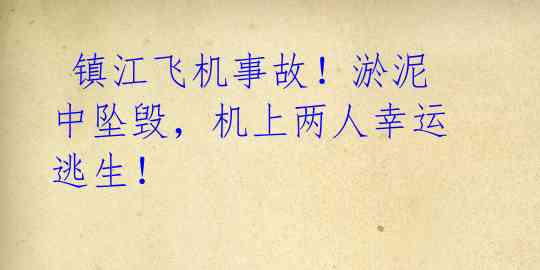 镇江飞机事故！淤泥
中坠毁，机上两人幸运
逃生！